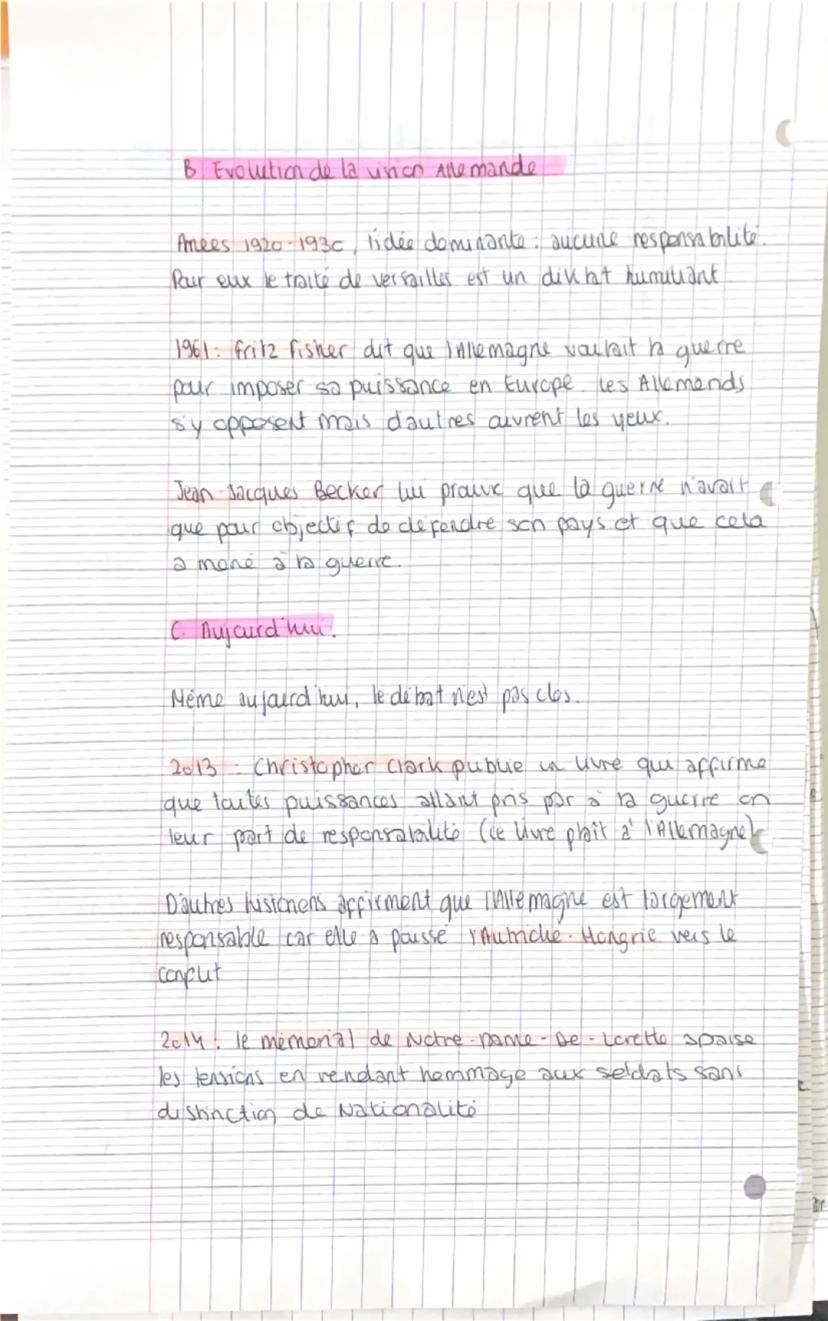 B. Evolution de la vision Allemande
Anees 1920-1930, l'idée dominante : aucune responsabilité.
Pour eux le traité de versailles est un diktat humiliant
1961 : fritz fisher dit que l'Allemagne voulait la guerre
pour imposer sa puissance en Europe. Les Allemands
s'y opposent mais d'autres ouvrent les yeux.
Jean-Jacques Becker lui prouve que la guerre n'avait
que pour objectif de défendre son pays et que cela
a mené à la guerre.
C. Aujourd'hui.
Même aujourd'hui, le débat n'est pas clos.
2013 : Christopher Clark publie un livre qui affirme
que toutes puissances allant pris par à la guerre on
leur part de responsabilité (ce livre plaît à l'Allemagne)
D'autres historiens affirment que l'Allemagne est largement
responsable car elle a poussé l'Autriche-Hongrie vers le
conflit
2014 : le mémorial de Notre-Dame-De-Lorette apaise
les tensions en rendant hommage aux soldats sans
distinction de Nationalité